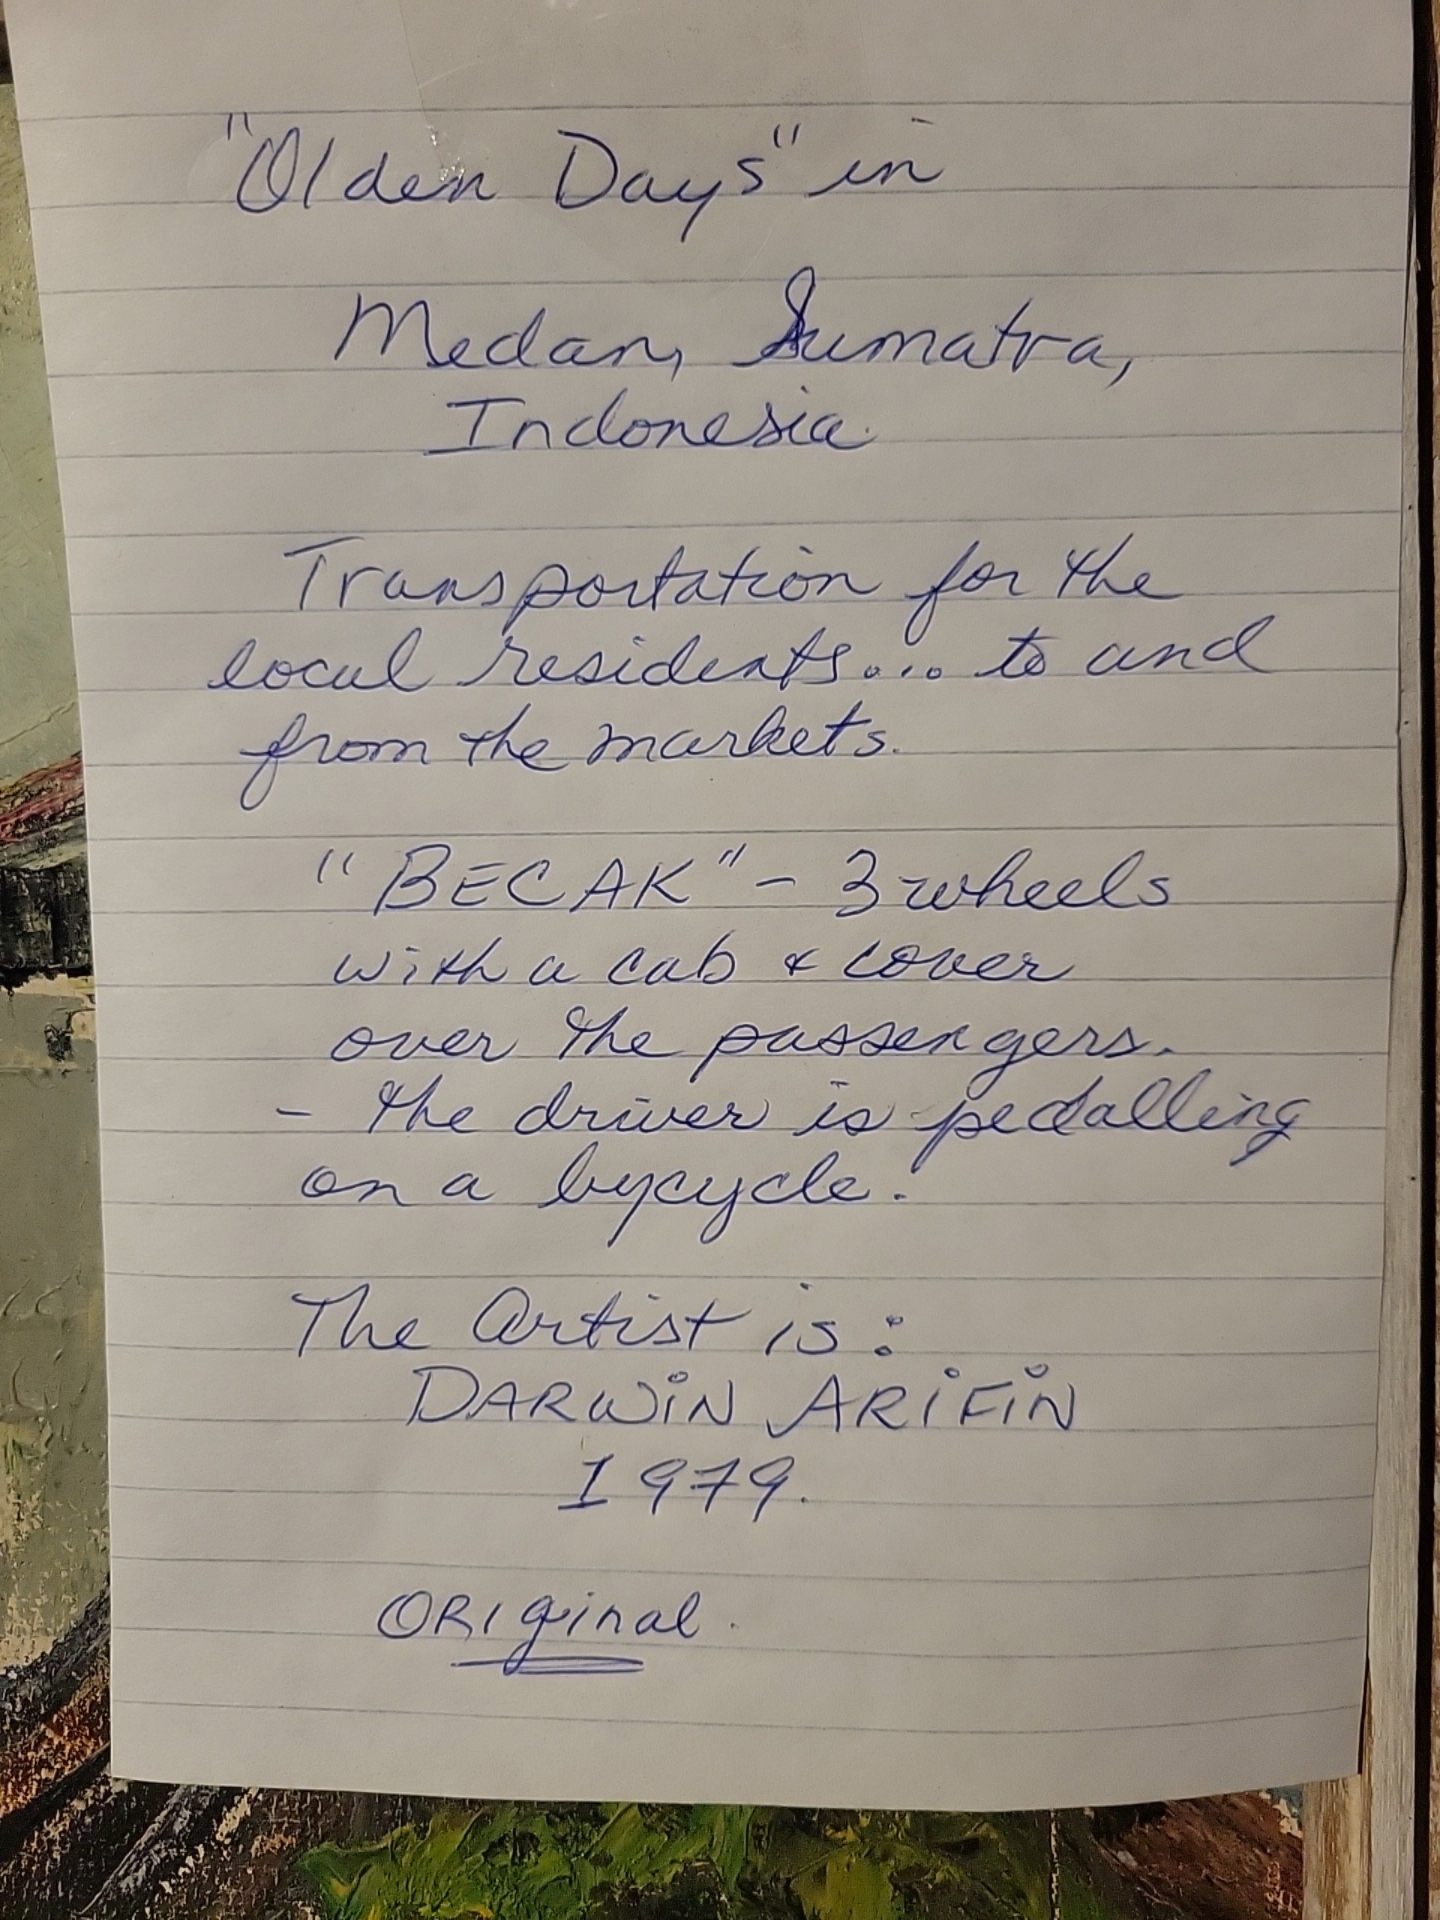 "Olden Days" in
Medan, Sumatra,
Indonesia.
Transportation for the
local residents... to and
from the markets.
"BECAK" - 3 wheels
with a cab & cover
over the passengers.
- the driver is pedalling
on a bycycle.
The Artist is:
DARWiN ARiFiN
1979.
ORiginal.